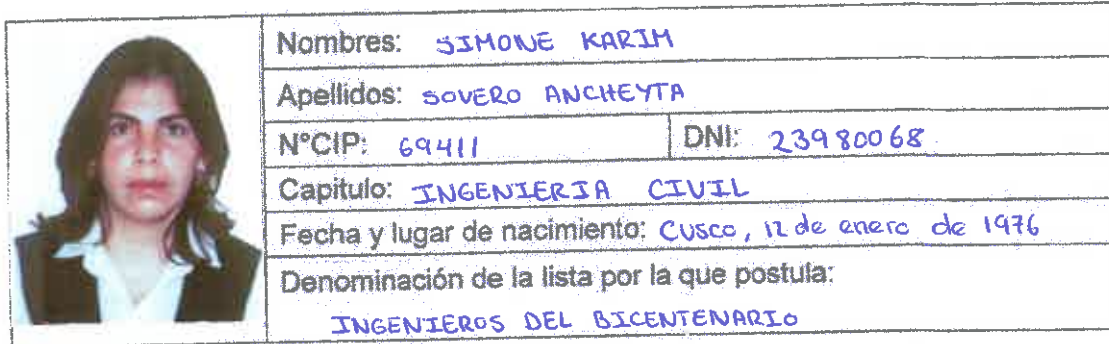 Nombres: SIMONE KARIM
Apellidos: SOVERO ANCHEYTA
N°CIP: 69411 DNI: 23980068
Capitulo: INGENIERIA CIVIL
Fecha y lugar de nacimiento: Cusco, 12 de enero de 1976
Denominación de la lista por la que postula:
INGENIEROS DEL BICENTENARIO